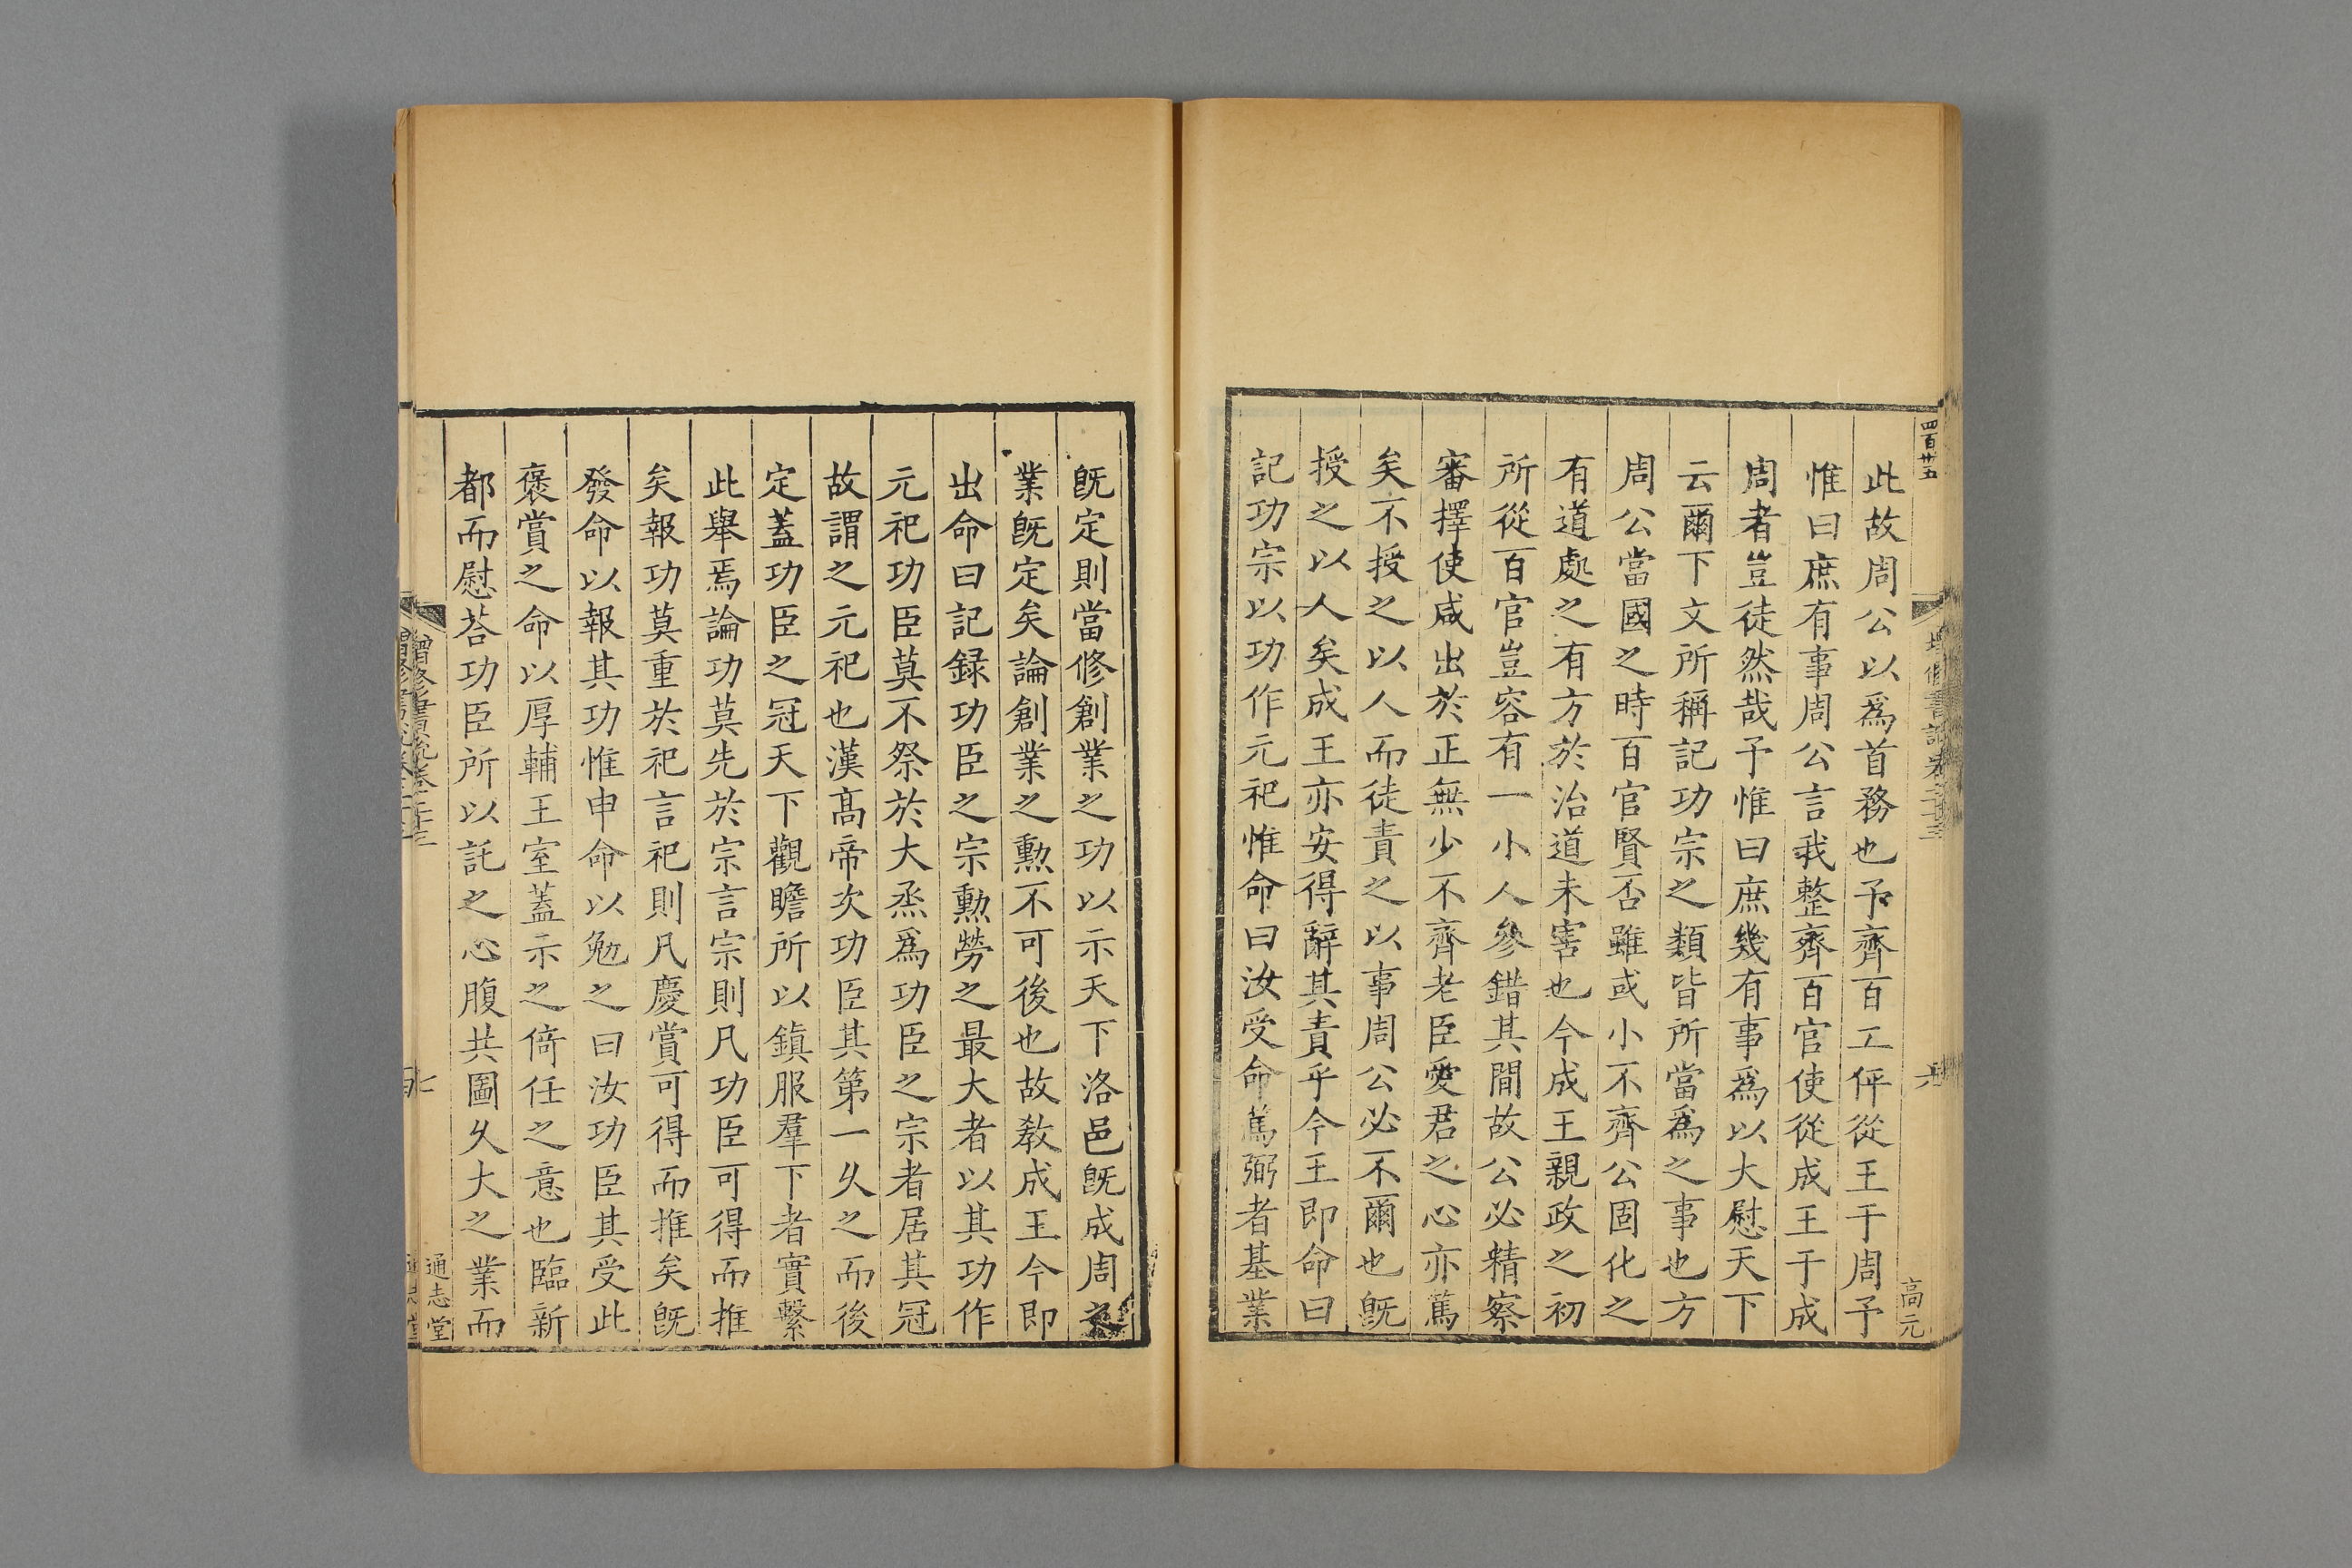 四百廿五
此故周公以爲首務也予齊百工伻從王于周予
惟曰庶有事周公言我整齊百官使從成王于成
周者豈徒然哉予惟曰庶幾有事爲以大慰天下
云爾下文所稱記功宗之類皆所當爲之事也方
周公當國之時百官賢否雖或小不齊公固化之
有道處之有方於治道未害也今成王親政之初
所從百官豈容有一小人參錯其間故公必精察
審擇使咸出於正無少不齊老臣愛君之心亦篤
矣不授之以人而徒責之以事周公必不爾也旣
授之以人矣成王亦安得辭其責乎今王即命曰
記功宗以功作元祀惟命曰汝受命篤弼者基業
高元
旣定則當修創業之功以示天下洛邑旣成周之
業旣定矣論創業之勲不可後也故敎成王今即
出命曰記録功臣之宗勲勞之最大者以其功作
元祀功臣莫不祭於大烝爲功臣之宗者居其冠
故謂之元祀也漢髙帝次功臣其第一乆之而後
定蓋功臣之冠天下觀瞻所以鎮服羣下者實繫
此舉焉論功莫先於宗言宗則凡功臣可得而推
矣報功莫重於祀言祀則凡慶賞可得而推矣旣
發命以報其功惟申命以勉之曰汝功臣其受此
褒賞之命以厚輔王室蓋示之倚任之意也臨新
都而慰荅功臣所以託之心腹共圖乆大之業而
增修書說卷二十三
七
通志堂